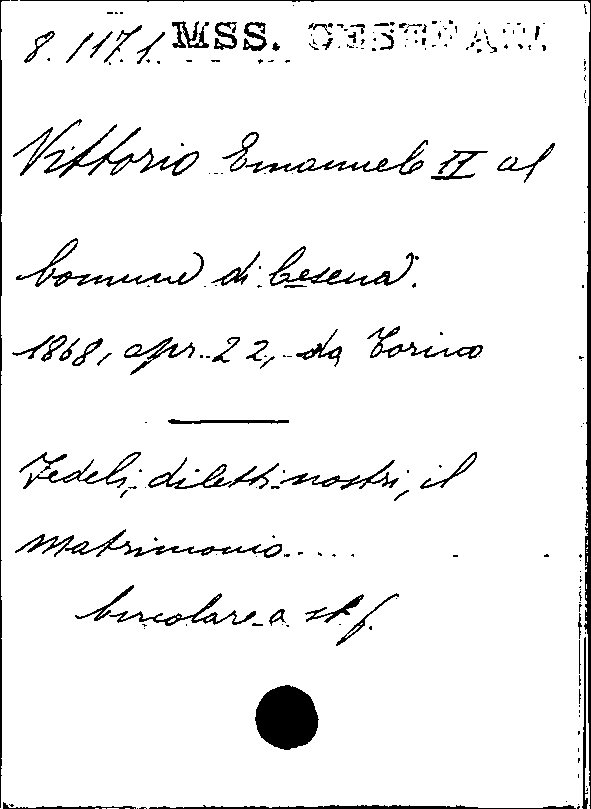 8.1171 MSS. CESENATI
Vittorio Emanuele II al
Comune di Cesena.
1868, apr. 22, da Torino
Fedeli, diletti nostri, il
matrimonio.....
Circolare a st. f.